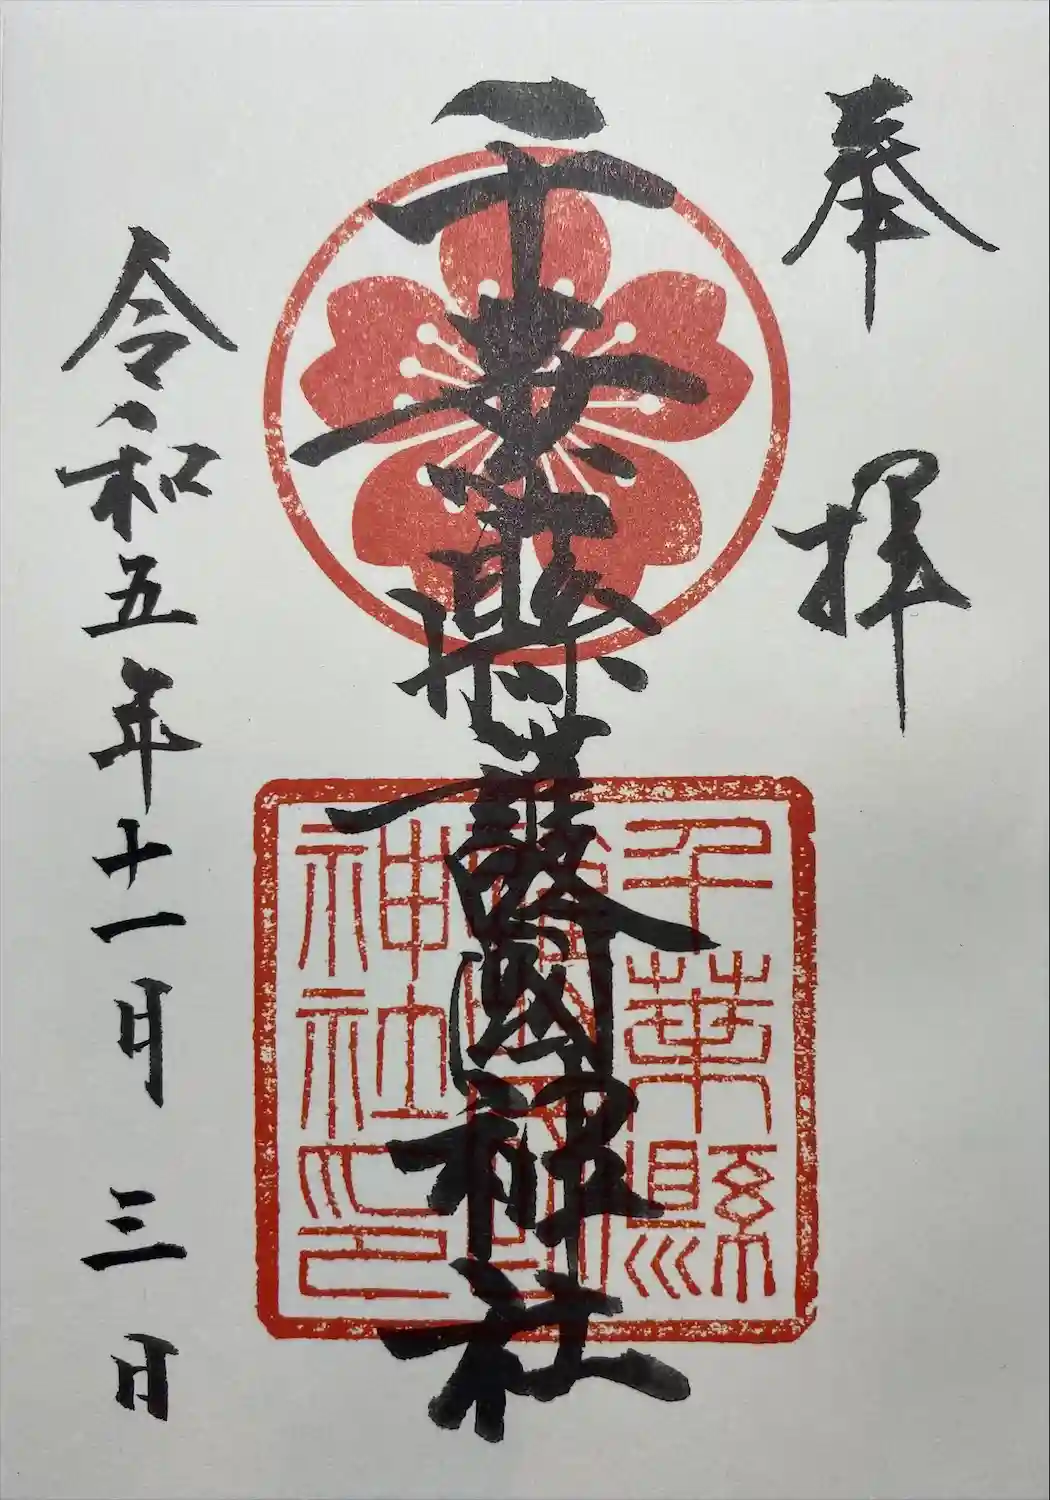 奉拝
千葉縣護國神社
千葉縣
護國
神社印
令和五年十一月三日